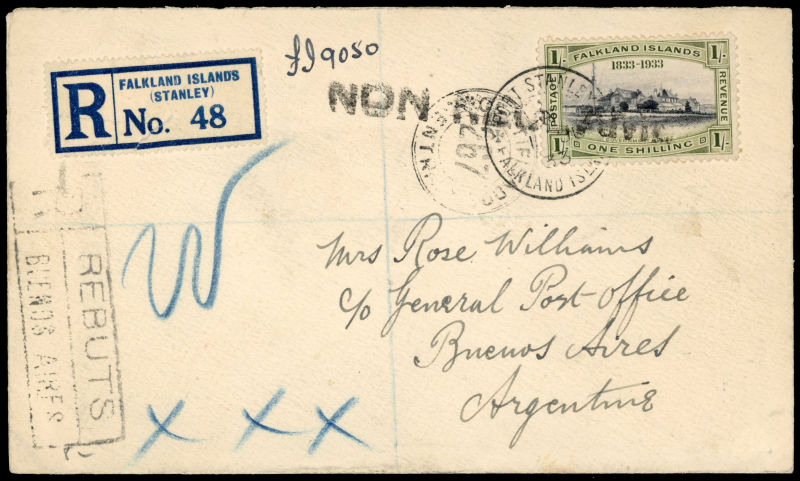 R
FALKLAND ISLANDS
(STANLEY)
No. 48
9050
NON
1/-
FALKLAND ISLANDS
1/-
1833-1933
POSTAGE
REVENUE
1/-
ONE SHILLING
1/-
STANLEY
FALKLAND ISL
Mrs Rose Williams
c/o General Post Office
Buenos Aires
Argentine
REBUTS
BUENOS AIRES
W
X X X